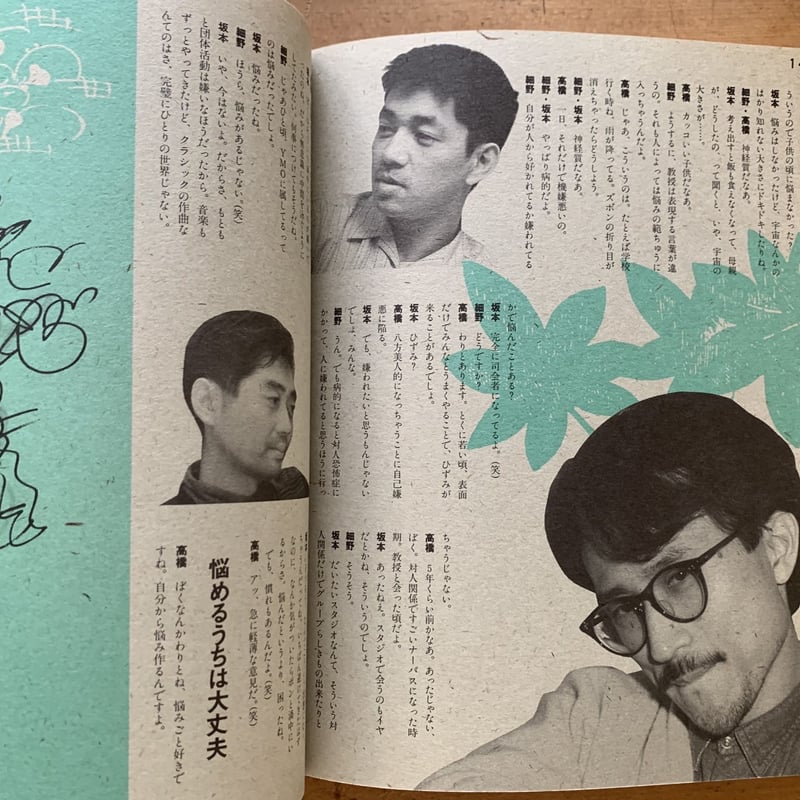 14
ういうので子供の頃に悩まなかった?
坂本 悩みはしなかったけど、宇宙なんかの
はかり知れない大きさにドキドキしたりね。
細野・高橋 神経質だなあ。
坂本 考え出すと飯も食えなくなって、母親
が、どうしたの、って聞くと、いや、宇宙の
大きさが……。
高橋 カッコいい子供だなあ。
細野 ようするに、教授は表現する言葉が違
うの。それも人によっては悩みの範ちゅうに
入っちゃうんだよ。
高橋 じゃあ、こういうのは。たとえば学校
行く時ね、雨が降ってる。ズボンの折り目が
消えちゃったらどうしよう。
細野・坂本 神経質だなあ。
高橋 一日、それだけで機嫌悪いの。
細野・坂本 やっぱり病的だよ。
細野 自分が人から好かれてるか嫌われてる
かで悩んだことある?
坂本 完全に司会者になってるよ。(笑)
細野 どうですか?
高橋 わりとあります。とくに若い頃、表面
だけでみんなとうまくやることで、ひずみが
来ることがあるでしょ。
坂本 ひずみ?
高橋 八方美人的になっちゃうことに自己嫌
悪に陥る。
坂本 でも、嫌われたいと思うもんじゃない
でしょ、みんな。
細野 うん。でも病的になると対人恐怖症に
かかって、人に嫌われてると思うほうに行っ
ちゃうじゃない。
高橋 5年くらい前かなあ。あったじゃない、
ぼく。対人関係ですごいナーバスになった時
期。教授と会った頃だよ。
坂本 あったねえ。スタジオで会うのもイヤ
だとかね、そういうのでしょ。
細野 そうそう。
坂本 だいたいスタジオなんて、そういう対
人関係だけでグループらしきもの出来たりと
細野 じゃあひと頃、YMOに属してるって
のは悩みだったでしょ。
坂本 悩みだったね。
細野 ほうら、悩みがあるじゃない。(笑)
坂本 いや、今はないよ。だからさ、もとも
と団体活動は嫌いなほうだったから。音楽も
ずっとやってきたけど、クラシックの作曲な
んてのはさ、完璧にひとりの世界じゃない。
なのに、なんか気がついたらポンと渦中にい
るからさ、悩んだというより、困ったね。
でも、慣れもあるんだよ。(笑)
高橋 アッ、急に軽薄な意見だ。(笑)
悩めるうちは大丈夫
高橋 ぼくなんかわりとね、悩みごと好きで
すね。自分から悩み作るんですよ。